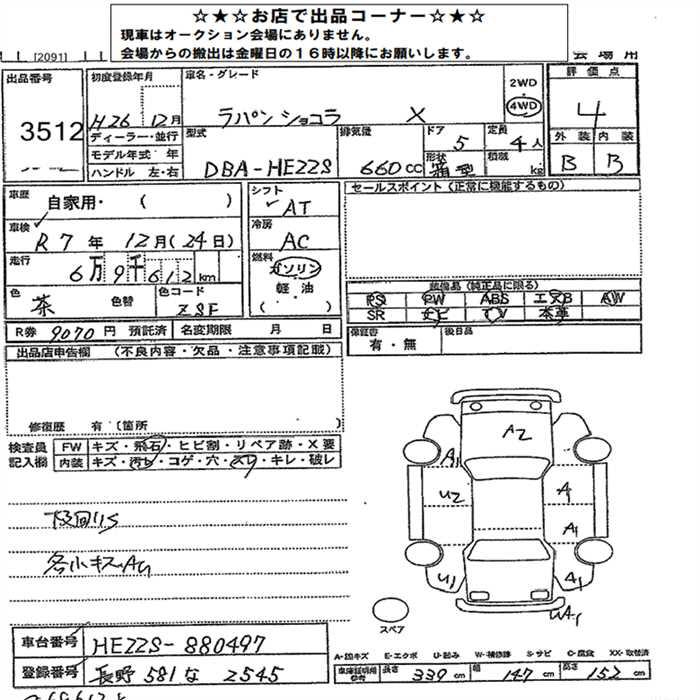 ☆★☆お店で出品コーナー☆★☆
現車はオークション会場にありません。
会場からの搬出は金曜日の16時以降にお願いします。
[2091]
出品番号
3512
初度登録年月
H26 12月
ディーラー・並行
モデル年式 年
ハンドル 左・右
車名・グレード
ラパンショコラ X
2WD
4WD
型式
DBA-HE22S
排気量
660cc
ドア
5
定員
4人
形状
箱型
積載
kg
評価点
4
外装 内装
B B
車歴
自家用・( )
車検
R7年 12月(24日)
走行
6万9千612km
色
茶 色替
色コード
ZSF
シフト
AT
冷房
AC
燃料
ガソリン
軽・油
( )
R券 9070円 預託済 名変期限 月 日
セールスポイント(正常に機能するもの)
装備品(純正品に限る)
PS PW ABS エアB AW
SR ナビ TV 本革
保証書
有・無
後日品
出品店申告欄 (不良内容・欠品・注意事項記載)
修復歴 有(箇所 )
検査員
記入欄
FW キズ・飛石・ヒビ割・リペア跡・X要
内装 キズ・汚れ・コゲ・穴・スレ・キレ・破レ
各小キズAU
A2
A1
U2
A1
A1
U1
A1
UA1
スペア
車台番号 HE22S-880497
登録番号 長野 581 な 2545
A-線キズ E-エクボ U-凹み W-補修跡 S-サビ C-腐食 XX-取替済
車庫証明用
参考
長さ 339cm 幅 147cm 高さ 152cm